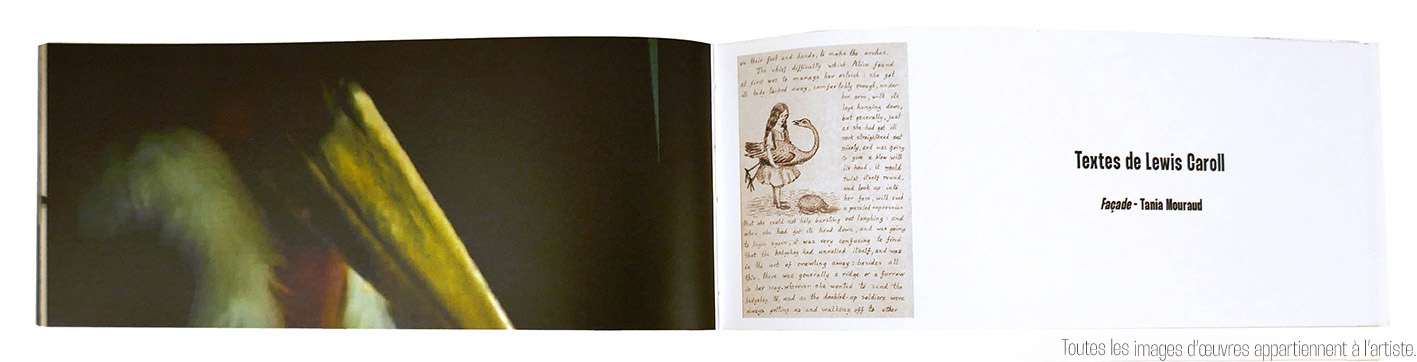 on their feet and hands, to make the arches.
The chief difficulty which Alice found
at first was to manage her ostrich: she got
its body tucked away, comfortably enough, under
her arm, with its
legs hanging down,
but generally, just
as she had got its
neck straightened out
nicely, and was going
to give a blow with
its head, it would
twist itself round,
and look up into
her face, with such
a puzzled expression
that she could not help bursting out laughing: and
when she had got its head down, and was going
to begin again, it was very confusing to find
that the hedgehog had unrolled itself, and was
in the act of crawling away: besides all
this, there was generally a ridge or a furrow
in her way, wherever she wanted to send the
hedgehog to, and as the doubled-up soldiers were
always getting up and walking off to other
Textes de Lewis Caroll
Façade - Tania Mouraud
Toutes les images d'œuvres appartiennent à l'artiste.